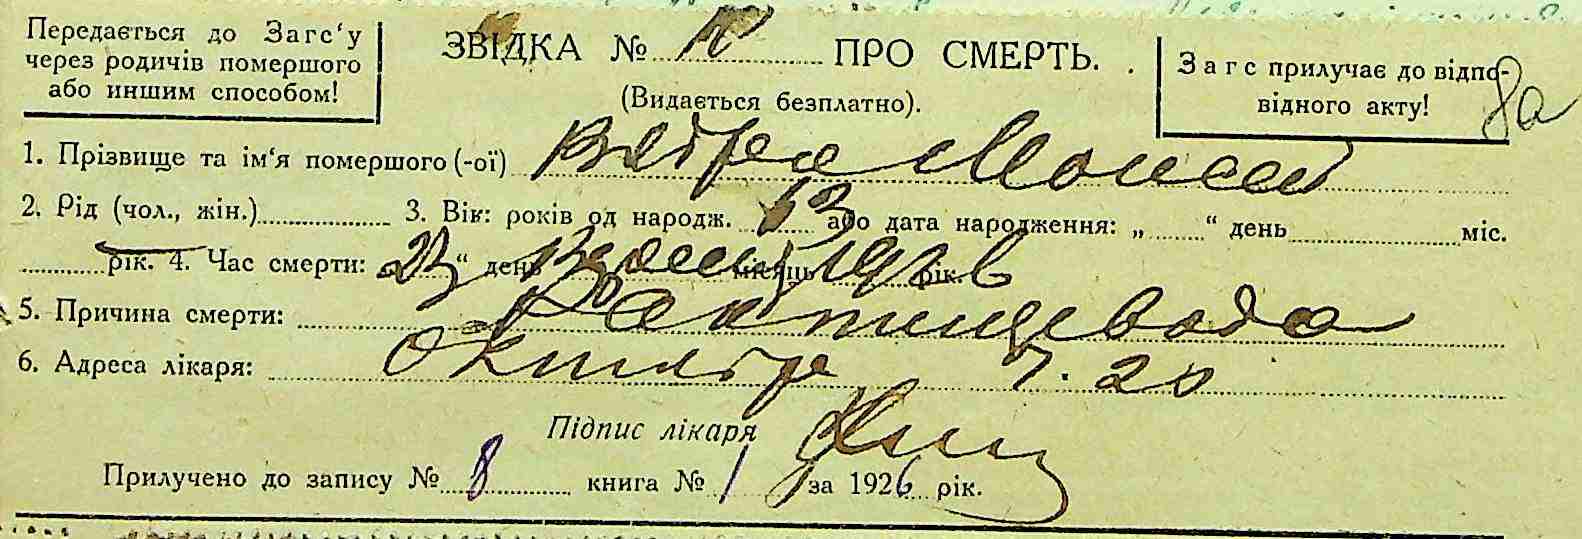 Передається до Загс‘у
через родичів помершого
або иншим способом!
ЗВІДКА № ПРО СМЕРТЬ.
(Видається безплатно).
Загс прилучає до відпо-
відного акту!
8а
1. Прізвище та ім‘я помершого (-ої) Моисей
2. Рід (чол., жін.) 3. Вік: років од народж. 63 або дата народження: „ “ день міс.
рік. 4. Час смерти: 23 “ день місяць 1926 рік.
5. Причина смерти:
6. Адреса лікаря: Октября 7. 20
Підпис лікаря
Прилучено до запису № 8 книга № 1 за 1926 рік.